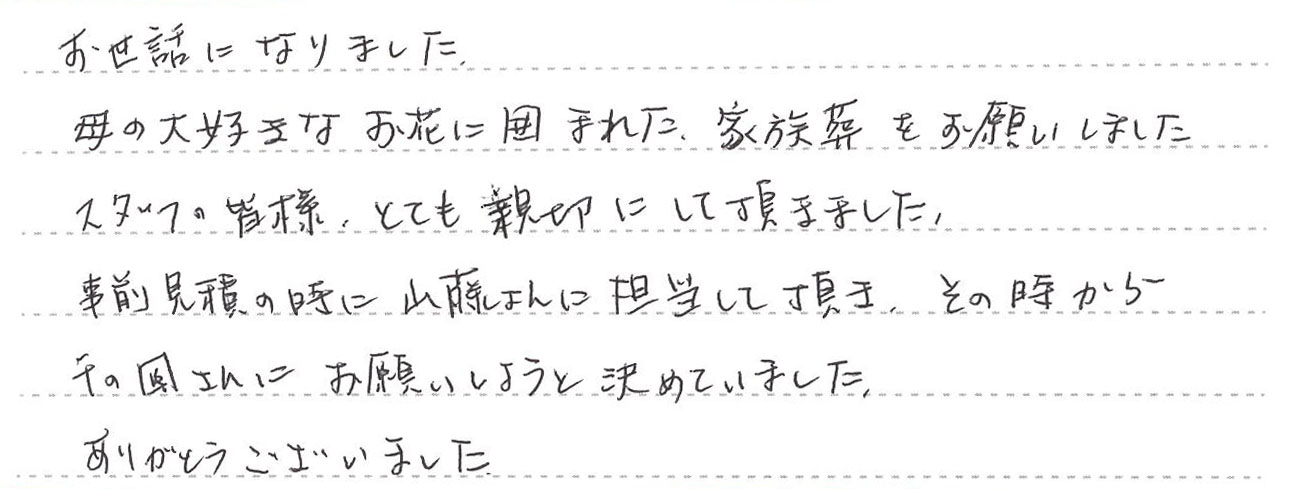 お世話になりました.
母の大好きな お花に囲まれた、家族葬をお願いしました
スタッフの皆様、とても親切にして頂きました,
事前見積の時に山藤さんに担当して頂き、その時から
千の風さんに お願いしようと決めていました,
ありがとうございました.